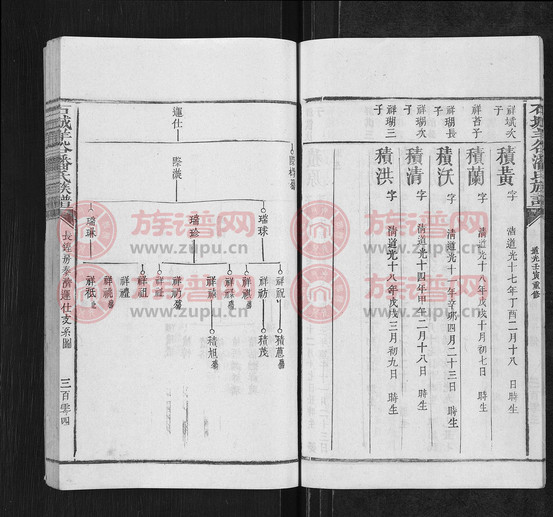 石城羊谷潘氏族譜
道光壬寅重修
祥斌次子
積黃 字 清道光十七年丁酉二月十八日 時生
祥苔子
積蘭 字 清道光十八年戊戌十月初七 時生
祥瑚長子
積沃 字 清道光十一年辛卯四月二十三日 時生
祥瑚次子
積清 字 清道光十四年甲午二月十八日 時生
祥瑚三子
積洪 字 清道光十八年戊戌三月初九日 時生
運仕
瑞球
瑞珍
瑞琳
祥祝
祥祖
祥禮
祥祇
積蕙
積茂
積旭
石城羊谷潘氏族譜
三百零四
族谱网
www.zupu.cn
族谱网
www.zupu.cn
族谱网
www.zupu.cn
族谱网
www.zupu.cn